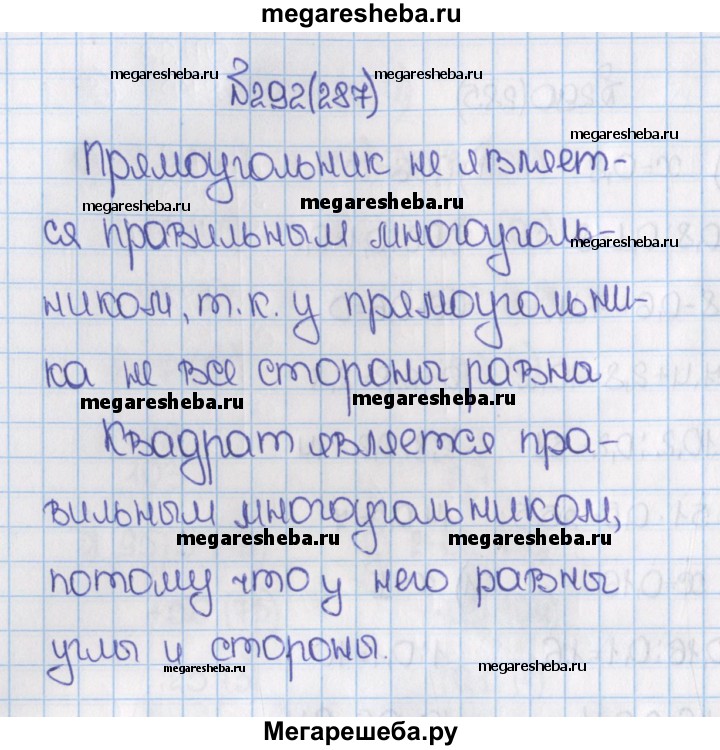 megaresheba.ru
№292(287)
megaresheba.ru megaresheba.ru
megaresheba.ru
Прямоугольник не являет-
megaresheba.ru megaresheba.ru
ся правильным многоуголь-
megaresheba.ru
ником, т.к. у прямоугольни-
ка не все стороны равны
megaresheba.ru megaresheba.ru
Квадрат является пра-
вильным многоугольником,
megaresheba.ru megaresheba.ru
потому что у него равны
углы и стороны.
megaresheba.ru megaresheba.ru
Мегарешеба.ру